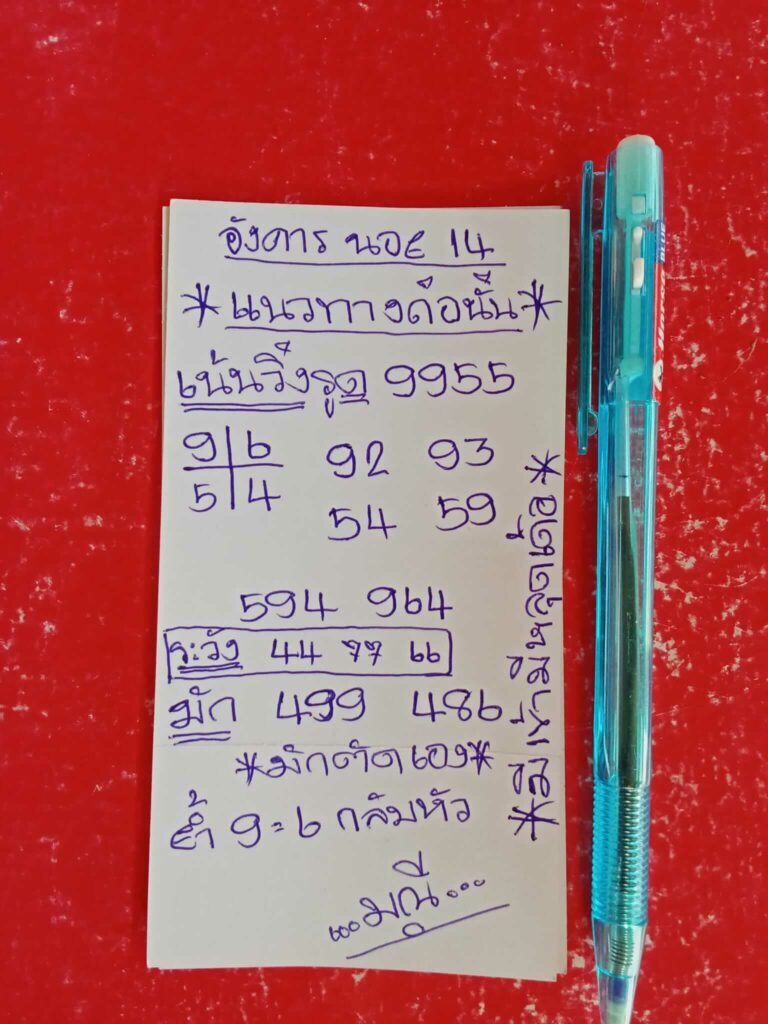 อังคาร นอย 14
*แนวทางด้อนั้น*
เน้นวิ่งรูด 9955
9 6
5 4
92 93
54 59
594 964
ระวัง 44 77 66
มัก 499 486
*มักตัดเอง*
ย้ำ 9=6 กลับหัว
...มณี...
*มีเข้ามีหลุดเด้อ*
BLUE